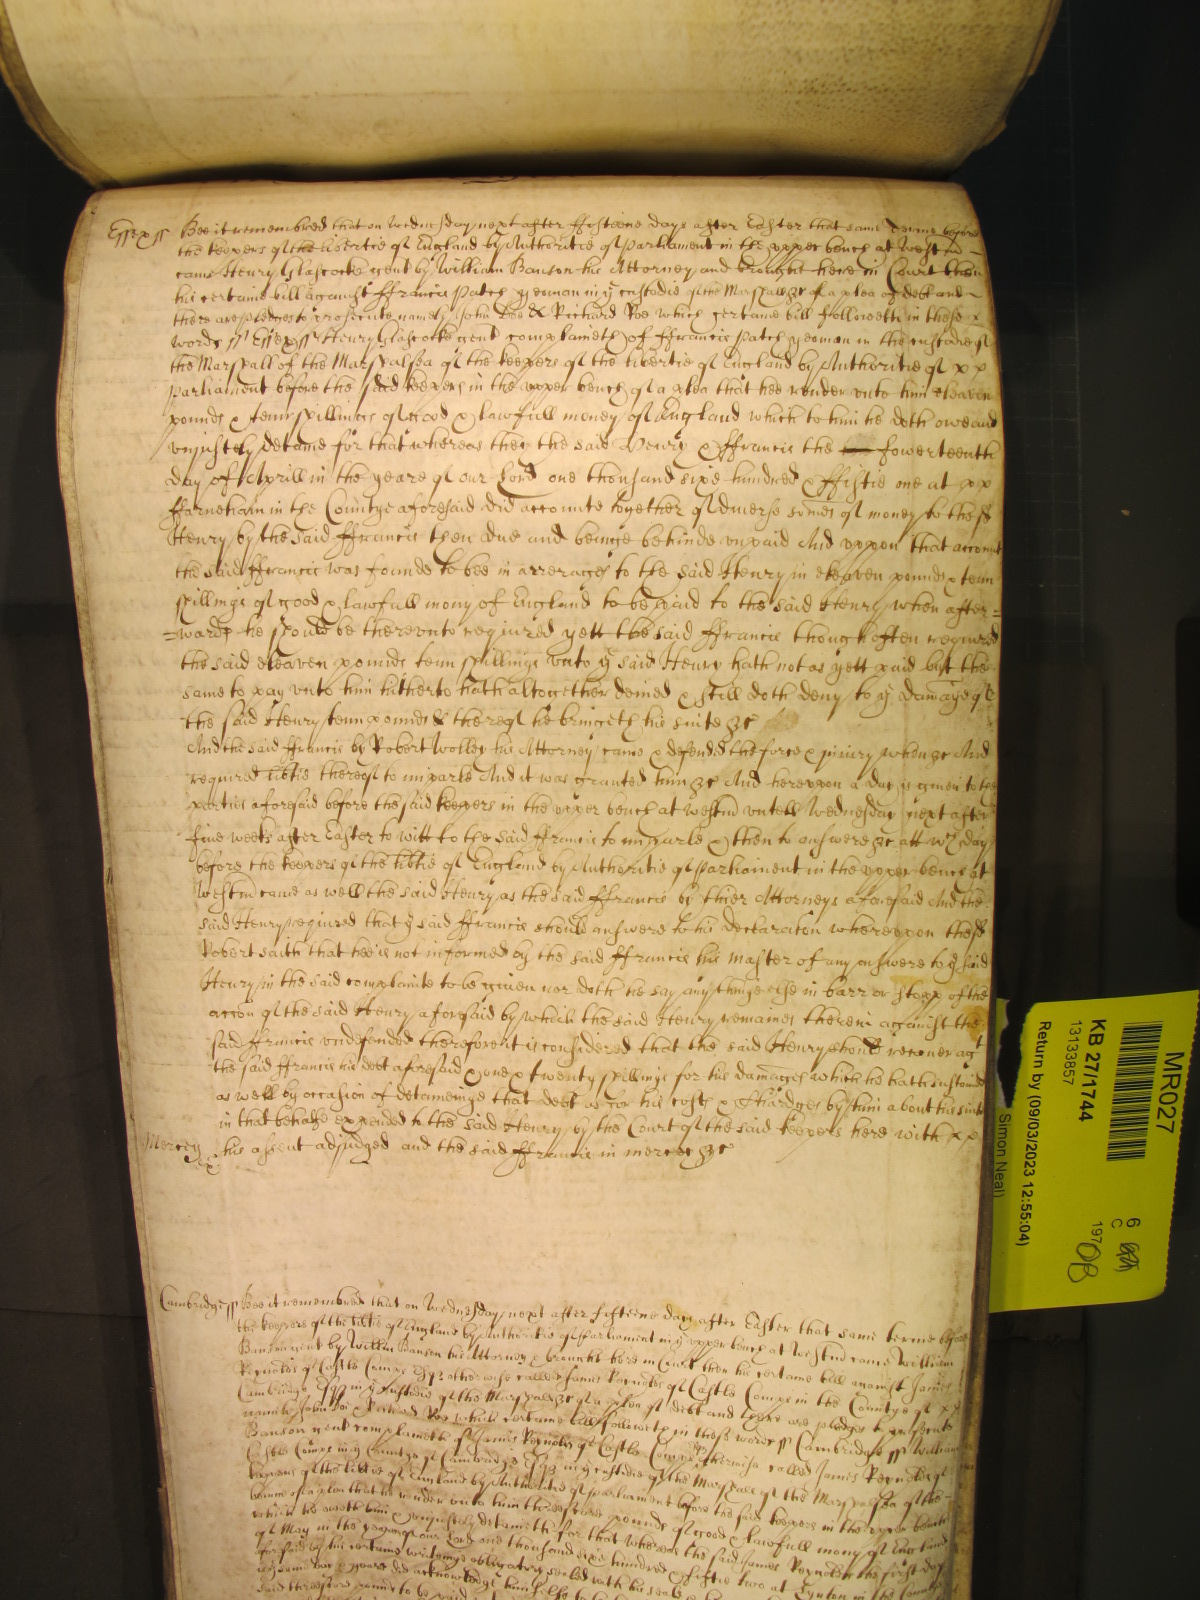 Essex ss Bee it remembred that on Wednesday next after fifteene dayes after Easter that same Terme before
the keepers of the libertie of England by Authoritie of parliament in the upper bench at Westm
came Henry Glascocke gent by William Banson his Attorney and brought here in Court then
his certaine bill against ffrancis Patch yeoman in ye custodie of the Marshall &c of a plea of debt and
there are pledges to prosecute namely John Doe & Richard Roe which certaine bill followeth in these x
words ss Essex ss Henry Glascocke gent complaineth of ffrancis Patch yeoman in the custodie of
the Marshall of the Marshalsea of the keepers of the libertie of England by Authoritie of x x
parliament before the said keepers in the upper bench of a plea that hee render unto him eleaven
pounds & tenn shillings of good & lawfull money of England which to him he doth owe and
uniustely detaine for that whereas they the said Henry & ffrancis the fowerteenth
day of Aprill in the yeare of our Lord one thousand sixe hundred & ffiftie one at x x
ffarneham in the Countye aforesaid did accounte together of diverse somes of money to the sd
Henry by the said ffrancis then due and beinge behinde unpaid And uppon that accounte
the said ffrancis was founde to bee in arrerages to the said Henry in eleaven pounds & tenn
shillings of good & lawfull mony of England to be paid to the said Henry when after=
=wards he should be thereunto required yett the said ffrancis though often required
the said eleaven pounds tenn shillings unto ye said Henry hath not as yett paid but the
same to pay unto him hitherto hath altogether denied & still doth deny to ye damage of
the said Henry tenn pounds & thereof he bringeth his suite &c
And the said ffrancis by Robert Wolley his Attorney came & defended the force & iniury when &c And
required libtie thereof to imparle And it was granted him &c And hereupon a day is given to the
parties aforesaid before the said keepers in the upper bench at Westm untill Wednesday next after
five weeks after Easter to witt to the said ffrancis to imparle & then to answere &c att wch day
before the keepers of the libtie of England by Authoritie of parliament in the upper bench at
Westm came as well the said Henry as the said ffrancis by thier Attorneys aforesaid And the
said Henry required that ye said ffrancis should answere to his declaration whereupon the sd
Robert saith that hee is not informed by the said ffrancis his Master of any answere to ye said
Henry in the said complainte to be given nor doth he say any thinge else in barr or stopp of the
accon of the said Henry aforesaid by which the said Henry remaines therein against the
said ffrancis undefended therefore it is considered that the said Henry should recover agt
the said ffrancis his debt aforesaid & one & twenty shillings for his damages which he hath sustained
as well by occasion of detaineinge that debt as for his costs & Chardges by him about his suite
in that behalfe expended to the said Henry by the Court of the said keepers here with x x
Mercy his assent adjudged and the said ffrancis in mercy &c
Cambridge ss Bee it remembred that on Wednesday next after fifteene dayes after Easter that same terme before
the keepers of the libtie of England by Authoritie of parliament in ye upper bench at Westm came William
Banson gent by Willm Banson his Attorney & brought here in Court then his certaine bill against James
Reynolds of Castle Campe Esqr otherwise called James Reynolds of Castle Campe in the Countye of x x
Cambridge Esqr in ye custodie of the Marshall &c of a plea of debt and there are pledges to prosecute
namely John Doe & Richard Roe which certaine bill followeth in these words ss Cambridge ss William
Banson gent complaineth of James Reynolds of Castle Campe otherwise called James Reynolds of
Castle Campe in ye Countye of Cambridge Esqr in ye custodie of the Marshall of the Marshalsea of the
keepers of the libtie of England by Authoritie of parliament before the said keepers in the upper bench
of a plea that he render unto him threescore pounds of good & lawfull mony of England
which he oweth him & uniustly detaineth for that whereas the said James Reynolds the first day
of May in the yeare of our Lord one thousand sixe hundred & fiftie two at in the Countye
aforesaid by his certaine writeinge obligatory sealed with his seale
did acknowledge himselfe to be
said threescore pounds to be paid
MR027
KB 27/1744
13133857
Return by (09/03/2023 12:55:04)
Simon Neal)
6
C
197